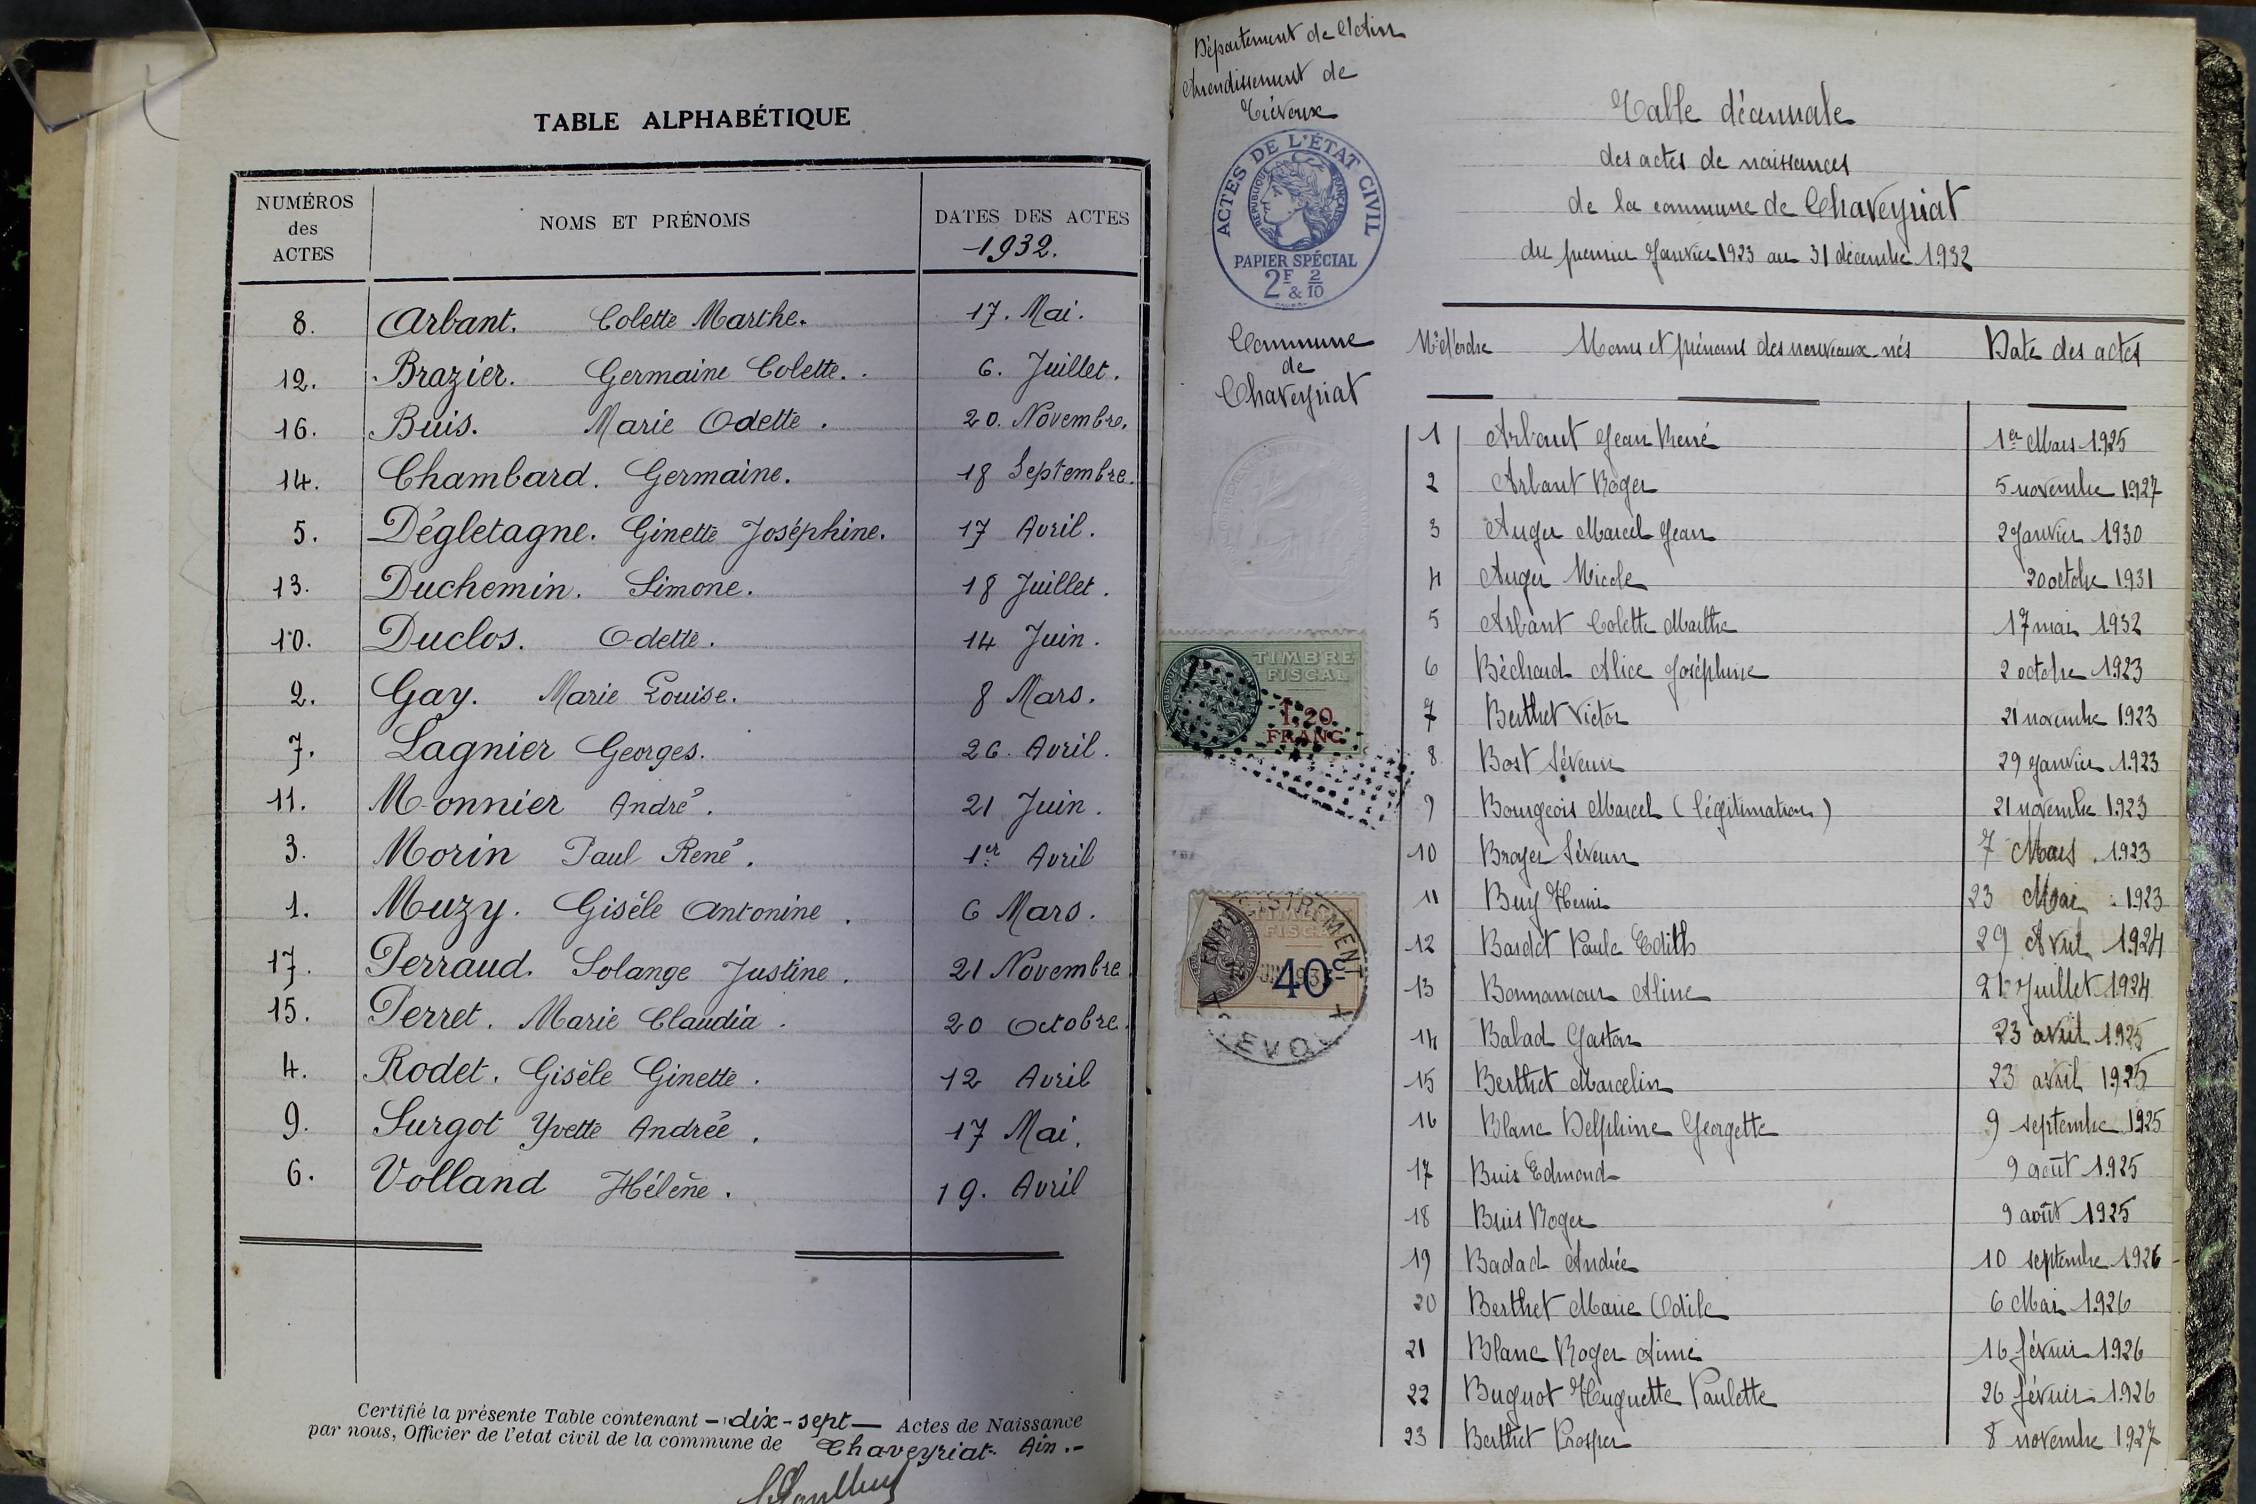 TABLE ALPHABÉTIQUE
NUMÉROS des ACTES NOMS ET PRÉNOMS DATES DES ACTES 1932.
8. Arbant. Colette Marthe. 17. Mai.
12. Brazier. Germaine Colette. 6. Juillet.
16. Buis. Marie Odette. 20. Novembre.
14. Chambard. Germaine. 18 Septembre.
5. Dégletagne. Ginette Joséphine. 17 Avril.
13. Duchemin. Simone. 18 Juillet.
10. Duclos. Odette. 14 Juin.
2. Gay. Marie Louise. 8 Mars.
7. Lagnier Georges. 26. Avril.
11. Monnier André. 21 Juin.
3. Morin Paul René. 1er Avril
1. Muzy. Gisèle Antonine. 6 Mars.
17. Perraud. Solange Justine. 21 Novembre
15. Perret. Marie Claudia. 20 Octobre.
4. Rodet. Gisèle Ginette. 12 Avril
9. Surgot Yvette Andrée. 17 Mai.
6. Volland Hélène. 19. Avril
Certifié la présente Table contenant - dix-sept - Actes de Naissance
par nous, Officier de l'etat civil de la commune de Chaveyriat Ain.-
Département de l'Ain
Arrondissement de
Trévoux
ACTES DE L'ÉTAT CIVIL
RÉPUBLIQUE FRANÇAISE
PAPIER SPÉCIAL
2F & 2/10
Commune
de
Chaveyriat
TIMBRE
FISCAL
1,20
FRANC
ENREGISTREMENT
TIMBRE
FISCAL
40c
Table décennale
des actes de naissances
de la commune de Chaveyriat
du premier Janvier 1923 au 31 décembre 1932
N° d'ordre Noms et prénoms des nouveaux-nés Date des actes
1 Arbant Jean René 1er Mars 1925
2 Arbant Roger 5 novembre 1927
3 Auger Marcel Jean 2 Janvier 1930
4 Auger Nicole 20 octobre 1931
5 Arbant Colette Marthe 17 mai 1932
6 Béchard Alice Joséphine 2 octobre 1923
7 Berthet Victor 21 novembre 1923
8 Bost Séverin 29 Janvier 1923
9 Bourgeois Marcel (légitimation) 21 novembre 1923
10 Broyer Séverin 7 Mars 1923
11 Buy Henri 23 Mai 1923
12 Bardet Paule Edith 29 Avril 1924
13 Bonnamour Aline 21 Juillet 1924
14 Balad Gaston 23 avril 1925
15 Berthet Marcelin 23 avril 1925
16 Blanc Delphine Georgette 9 septembre 1925
17 Buis Edmond 9 août 1925
18 Buis Roger 9 août 1925
19 Badad Andrée 10 septembre 1926
20 Berthet Marie Odile 6 Mai 1926
21 Blanc Roger Aimé 16 février 1926
22 Buguot Huguette Paulette 26 février 1926
23 Berthet Prosper 8 novembre 1927